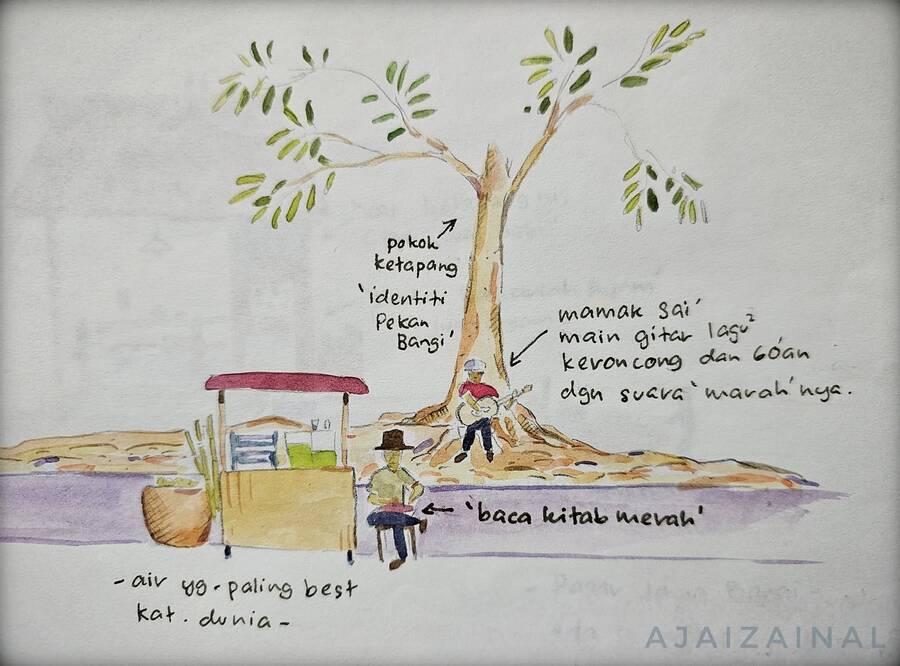 pokok
ketapang
'identiti
Pekan
Bangi'
mamak Sai'
main gitar lagu²
keroncong dan 60'an
dgn suara 'marah' nya.
'baca kitab merah'
- air yg. paling best
kat. dunia -
AJAIZAINAL